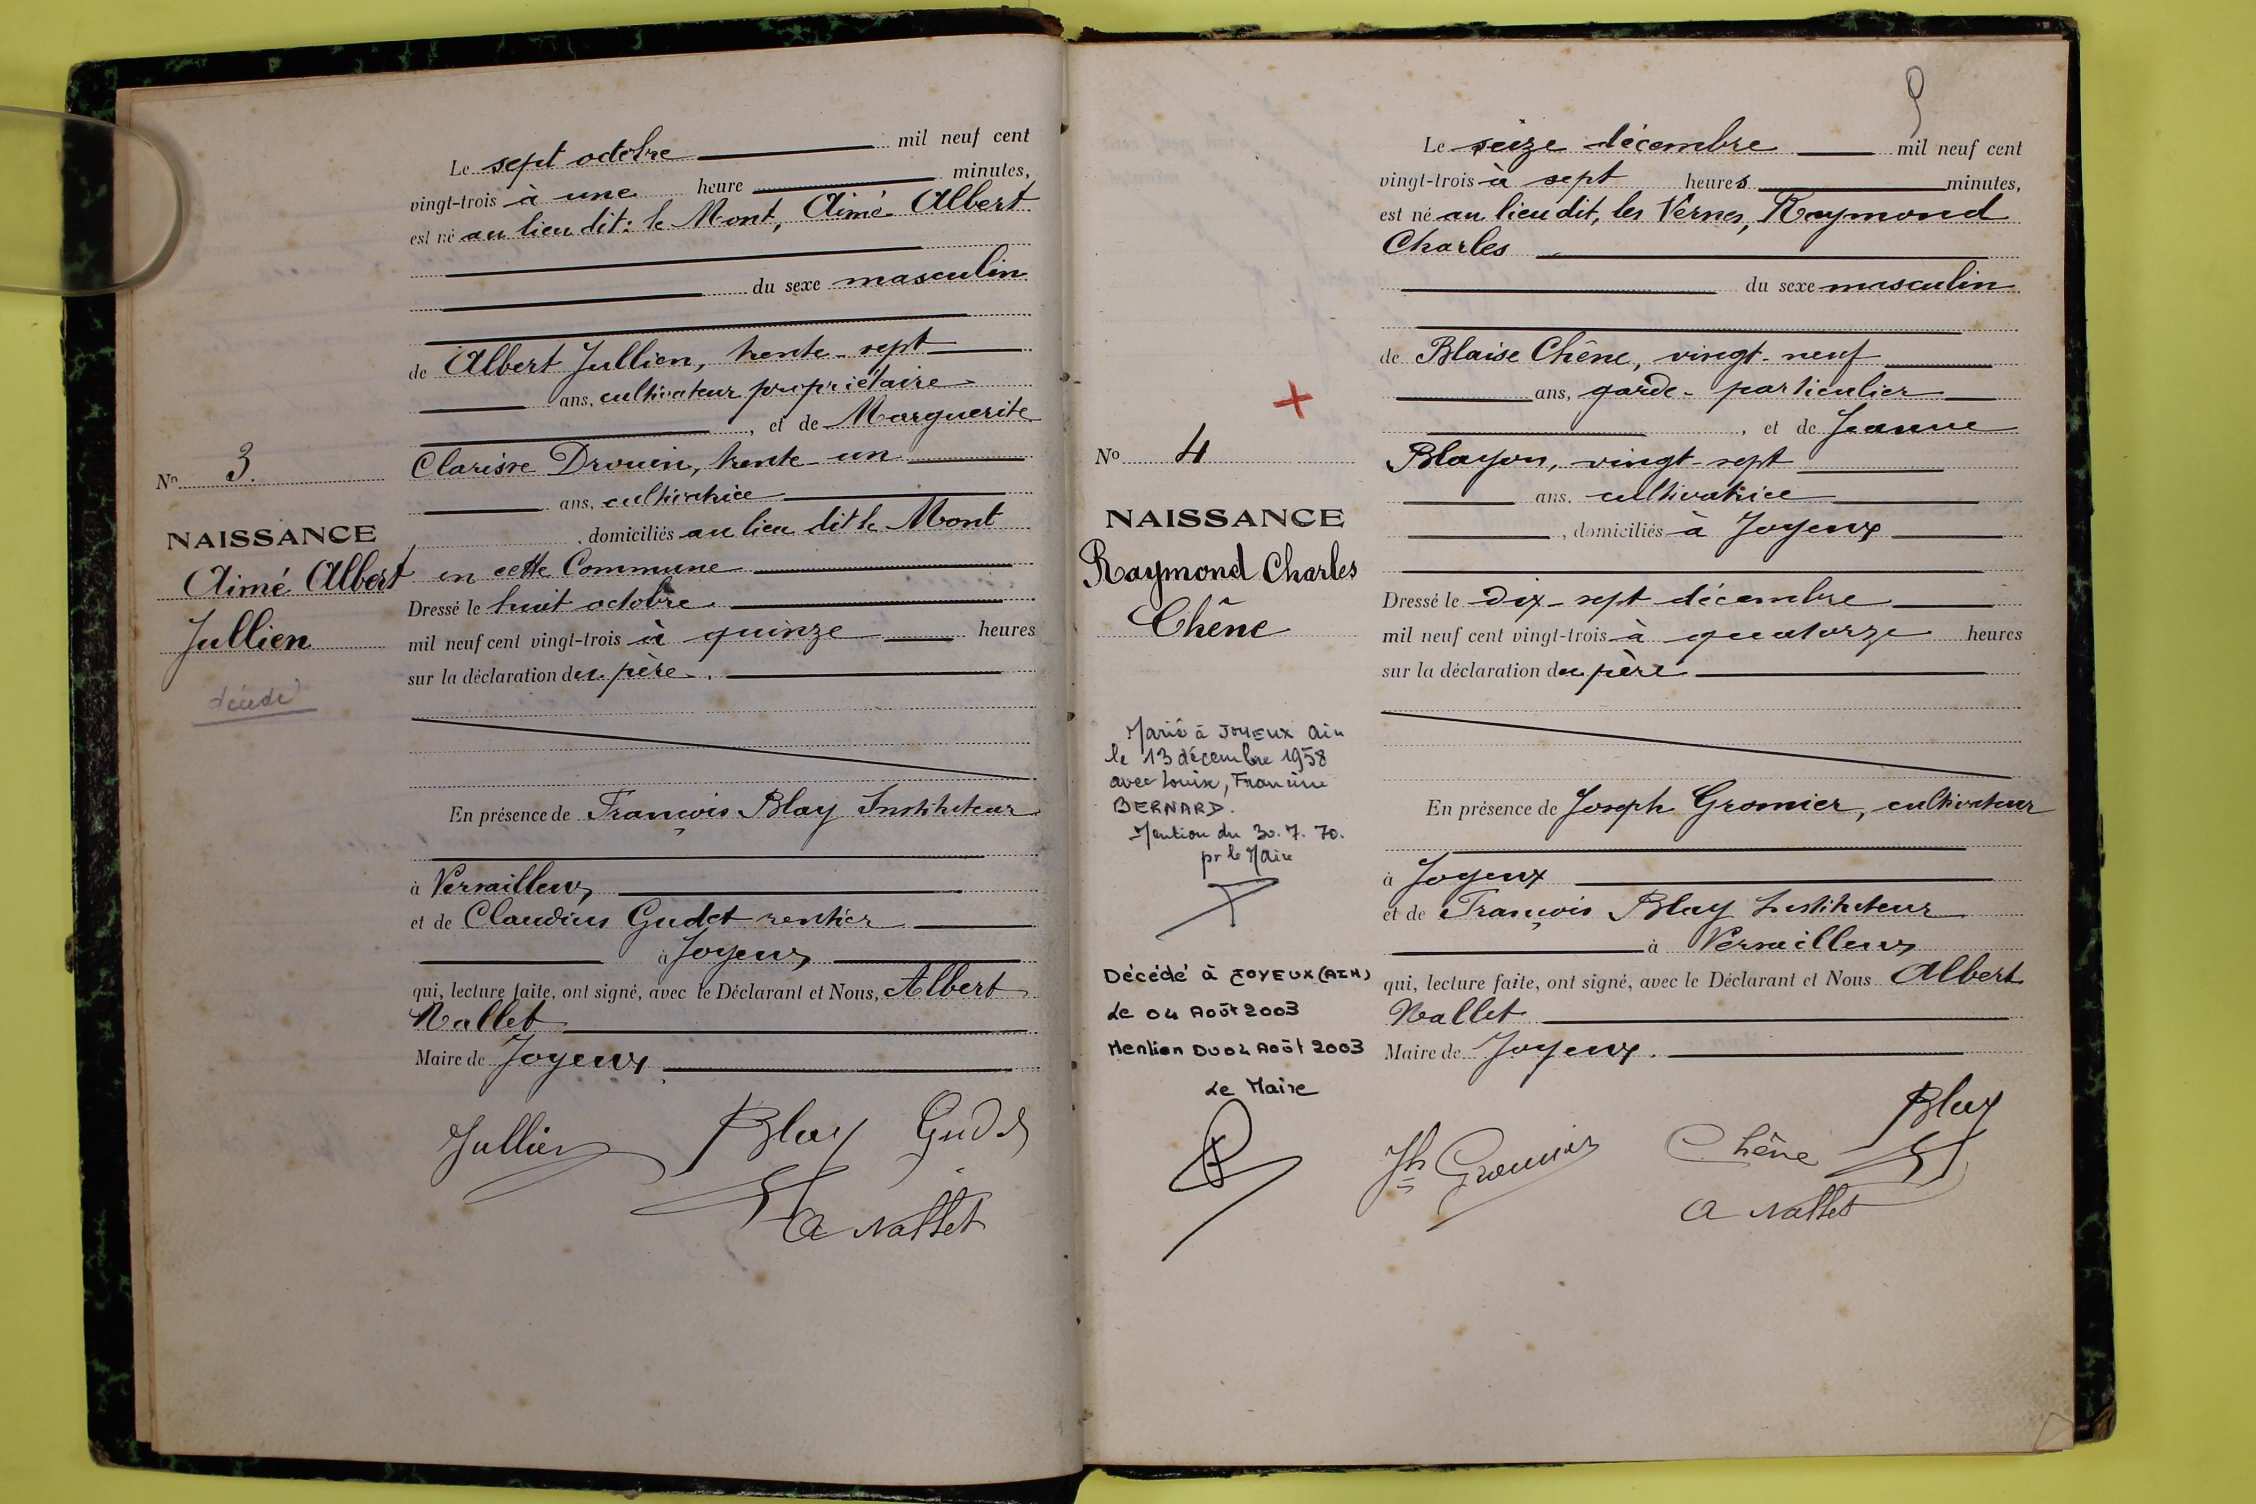 Le sept octobre mil neuf cent
vingt-trois à une heure minutes,
est né au lieu dit : le Mont, Aimé Albert
du sexe masculin
de Albert Jullien, trente-sept
ans, cultivateur propriétaire
, et de Marguerite
Clarisse Drouin, trente-un
ans, cultivatrice
, domiciliés au lieu dit le Mont
en cette Commune
Dressé le huit octobre
mil neuf cent vingt-trois à quinze heures
sur la déclaration du père.
En présence de François Blay Instituteur
à Versailleux
et de Claudius Gudet rentier
à Joyeux
qui, lecture faite, ont signé, avec le Déclarant et Nous, Albert
Nallet
Maire de Joyeux
Jullien Blay Gudet
A Nallet
No 3.
NAISSANCE
Aimé Albert
Jullien
décédé
9
Le seize décembre mil neuf cent
vingt-trois à sept heures minutes,
est né au lieu dit, les Vernes, Raymond
Charles
du sexe masculin
de Blaise Chêne, vingt-neuf
ans, garde-particulier
, et de Jeanne
Blayon, vingt-sept
ans, cultivatrice
, domiciliés à Joyeux
Dressé le dix-sept décembre
mil neuf cent vingt-trois à quatorze heures
sur la déclaration du père
En présence de Joseph Gromier, cultivateur
à Joyeux
et de François Blay Instituteur
à Versailleux
qui, lecture faite, ont signé, avec le Déclarant et Nous Albert
Nallet
Maire de Joyeux.
Blay
Jh Gromier Chêne
A Nallet
No 4
NAISSANCE
Raymond Charles
Chêne
Marié à JOYEUX Ain
le 13 décembre 1958
avec Louise, Francine
BERNARD.
Mention du 30.7.70.
pr le Maire
Décédé à JOYEUX (AIN)
Le 04 Août 2003
Mention DU 04 Août 2003
Le Maire